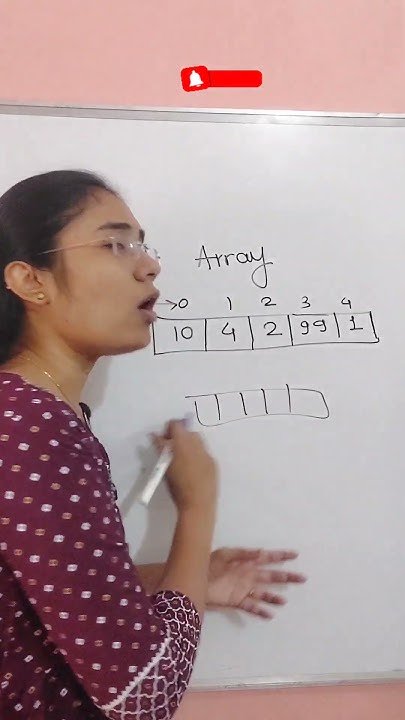 Array
→0 1 2 3 4
10 4 2 99 1